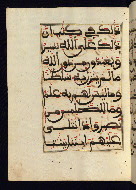 ذلك في كتب ان
ذلك على الله يسير
ويعبدون من دون الله
ما لم ينزل به سلطنا
وما ليس لهم به علم
وما للظلمين من
نصير واذا تتلى
عليهم ءايتنا بينت